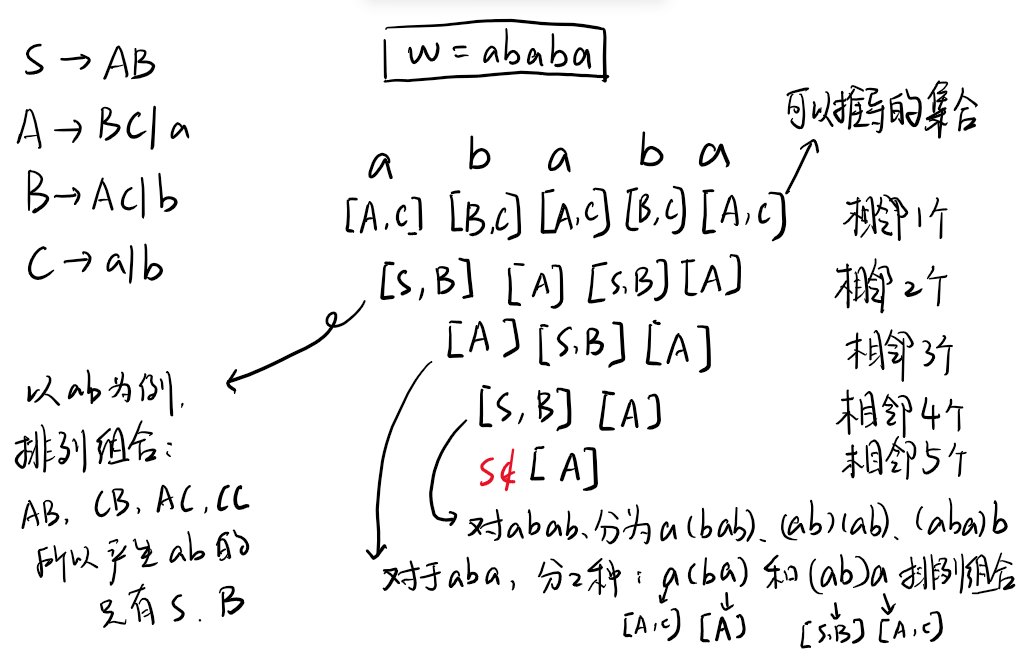 w = ababa
S → AB
A → BC|a
B → AC|b
C → a|b
可以推导的集合
a b a b a
[A,C] [B,C] [A,C] [B,C] [A,C] 相邻1个
[S,B] [A] [S,B] [A] 相邻2个
[A] [S,B] [A] 相邻3个
[S,B] [A] 相邻4个
S∉ [A] 相邻5个
以ab为例,
排列组合:
AB, CB, AC, CC
所以产生ab的
只有S、B
对abab、分为a(bab)、(ab)(ab)、(aba)b
对于aba, 分2种: a(ba) 和 (ab)a 排列组合
[A,C] [A] [S,B] [A,C]